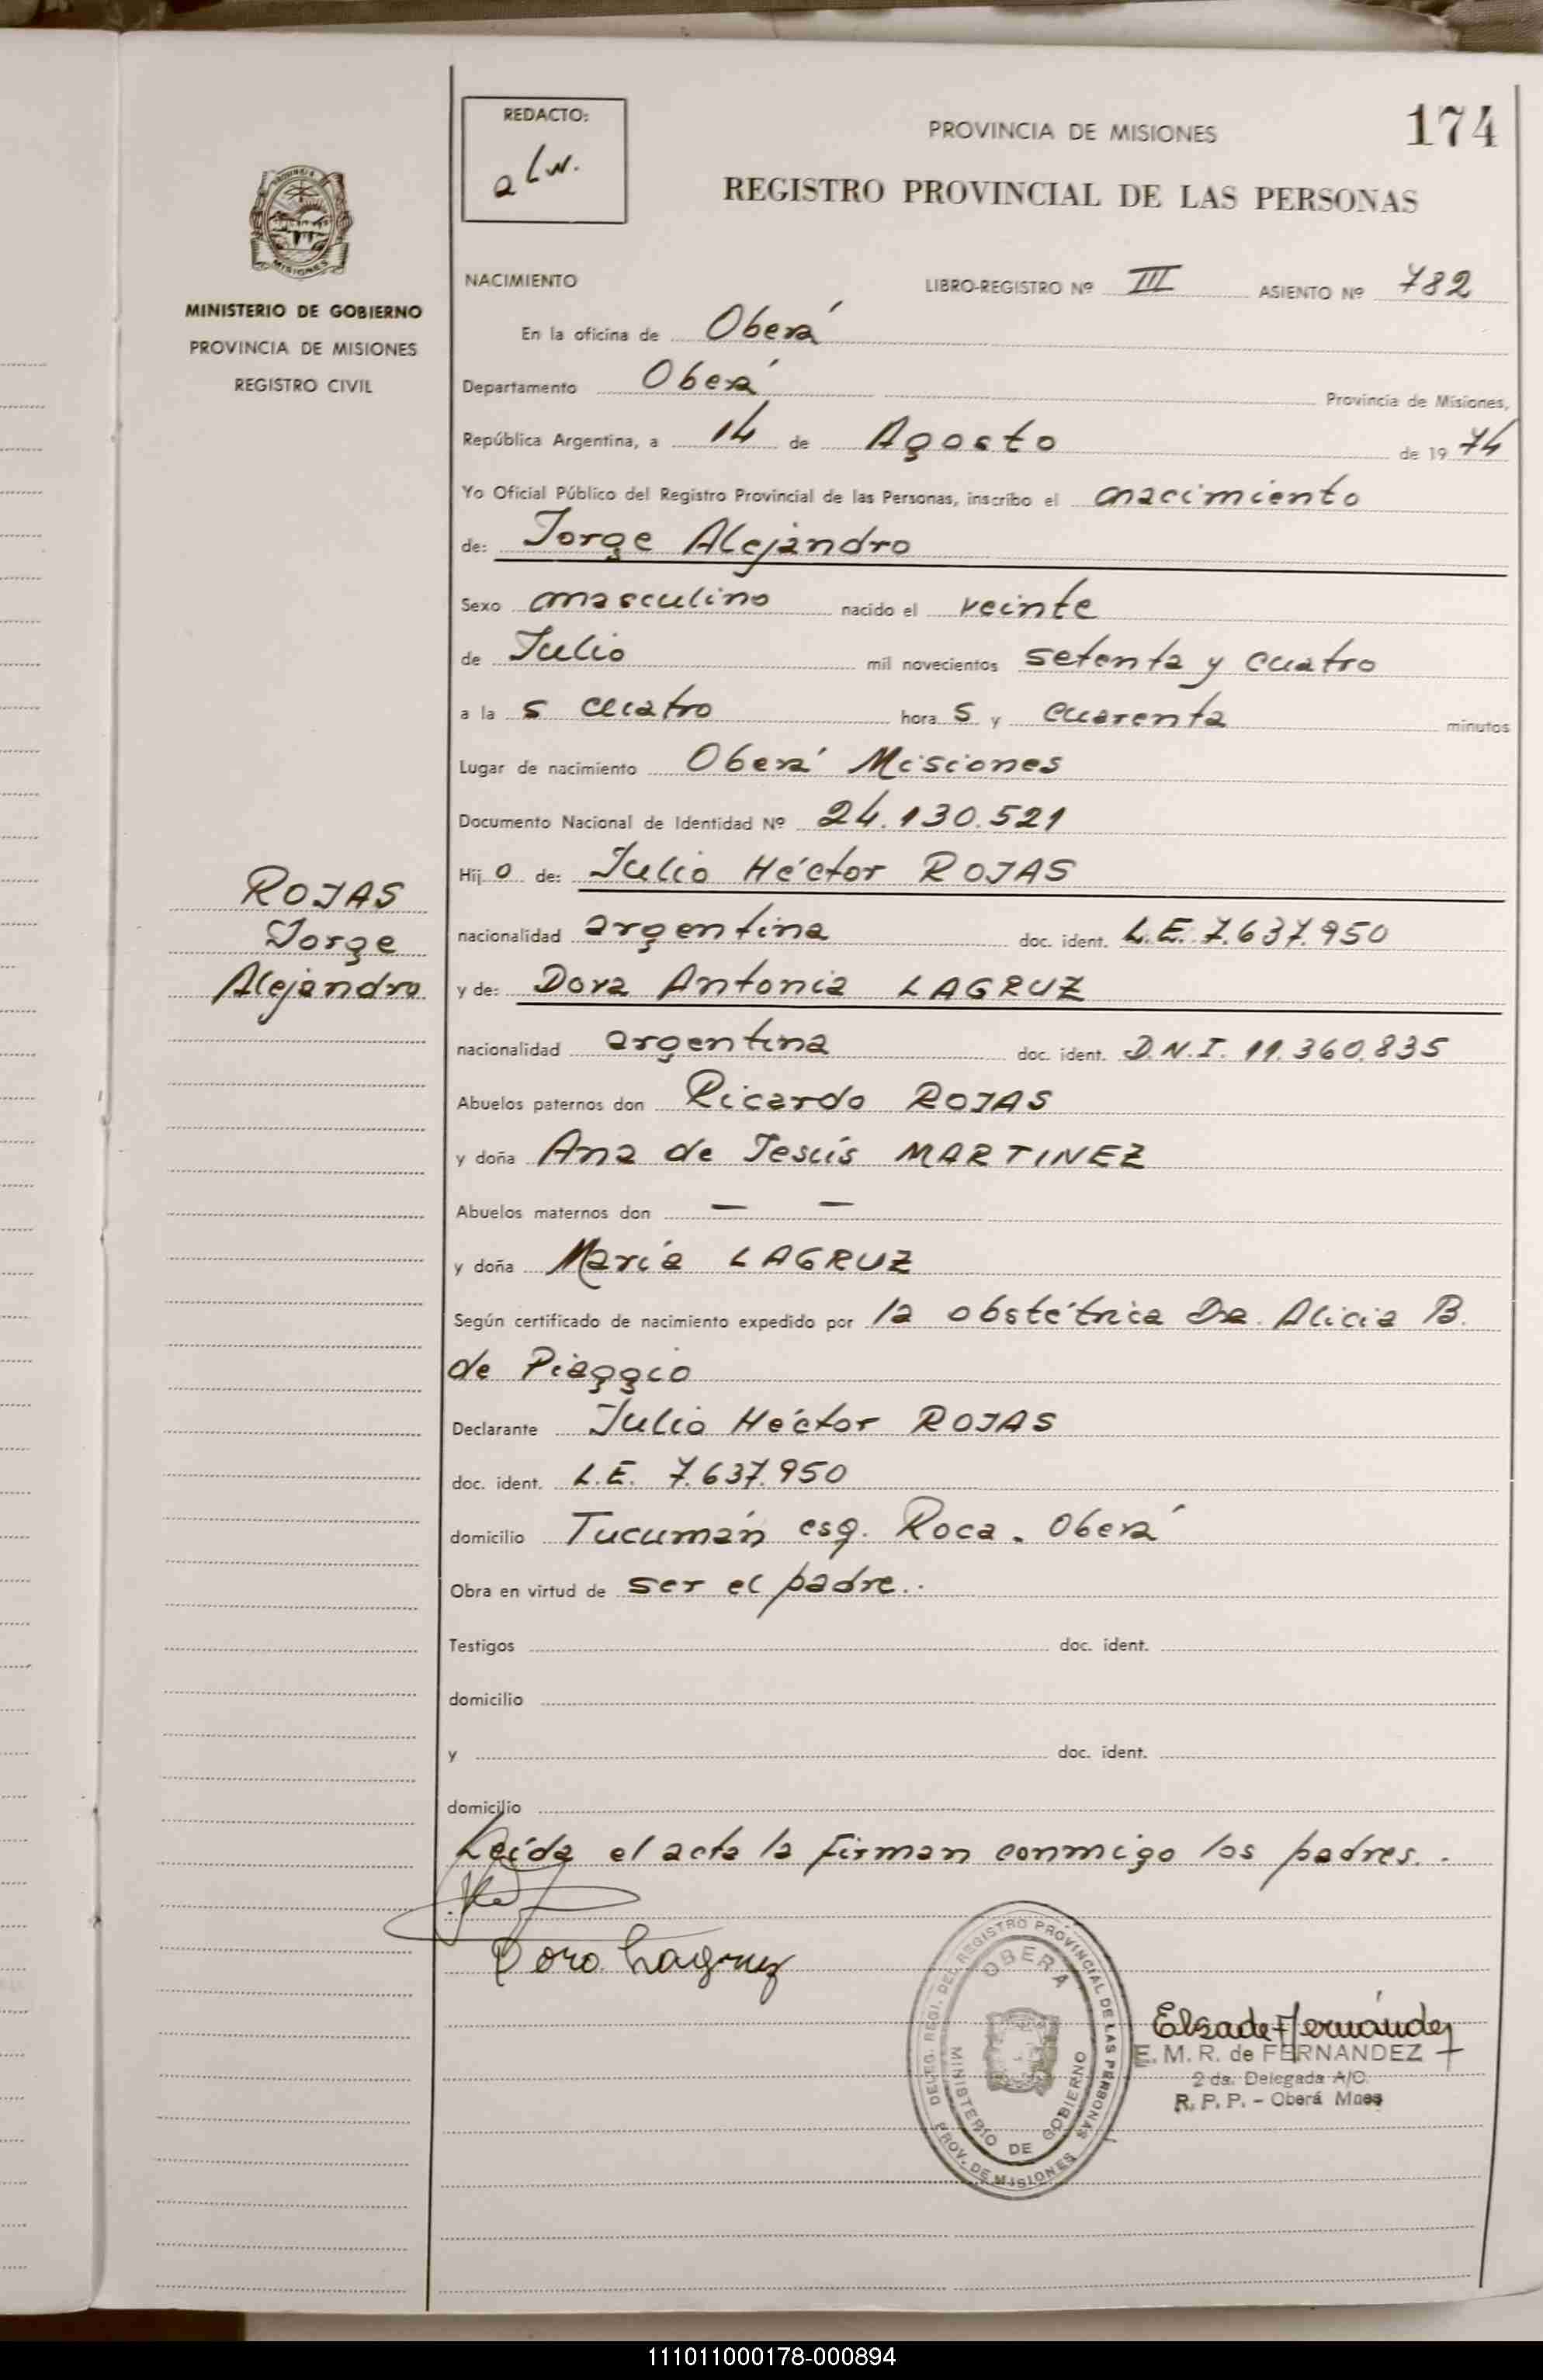 REDACTO:
PROVINCIA DE MISIONES
174
REGISTRO PROVINCIAL DE LAS PERSONAS
MISIONES
MINISTERIO DE GOBIERNO
PROVINCIA DE MISIONES
REGISTRO CIVIL
NACIMIENTO LIBRO-REGISTRO Nº III ASIENTO Nº 782
En la oficina de Oberá
Departamento Oberá Provincia de Misiones,
República Argentina, a 14 de Agosto de 1974
Yo Oficial Público del Registro Provincial de las Personas, inscribo el nacimiento
de: Jorge Alejandro
Sexo masculino nacido el veinte
de Julio mil novecientos setenta y cuatro
a la s cuatro hora s y cuarenta minutos
Lugar de nacimiento Oberá Misiones
Documento Nacional de Identidad Nº 24.130.521
Hij o de: Julio Héctor ROJAS
ROJAS
Jorge
Alejandro
nacionalidad argentina doc. ident. L.E. 7.637.950
y de: Dora Antonia LAGRUZ
nacionalidad argentina doc. ident. D.N.I. 11.360.835
Abuelos paternos don Ricardo ROJAS
y doña Ana de Jesús MARTINEZ
Abuelos maternos don — —
y doña María LAGRUZ
Según certificado de nacimiento expedido por la obstétrica Da. Alicia B.
de Piaggio
Declarante Julio Héctor ROJAS
doc. ident. L.E. 7.637.950
domicilio Tucumán esq. Roca. Oberá
Obra en virtud de ser el padre..
Testigos doc. ident.
domicilio
y doc. ident.
domicilio
Leída el acta la firman conmigo los padres..
Dora Lagruz
DELEG. REGI. DEL REGISTRO PROVINCIAL DE LAS PERSONAS
OBERA
MINISTERIO DE GOBIERNO
PROV. DE MISIONES
Elsa de Fernández
E. M. R. de FERNANDEZ
2 da. Delegada A/C.
R. P. P. - Oberá Mnes
111011000178-000894